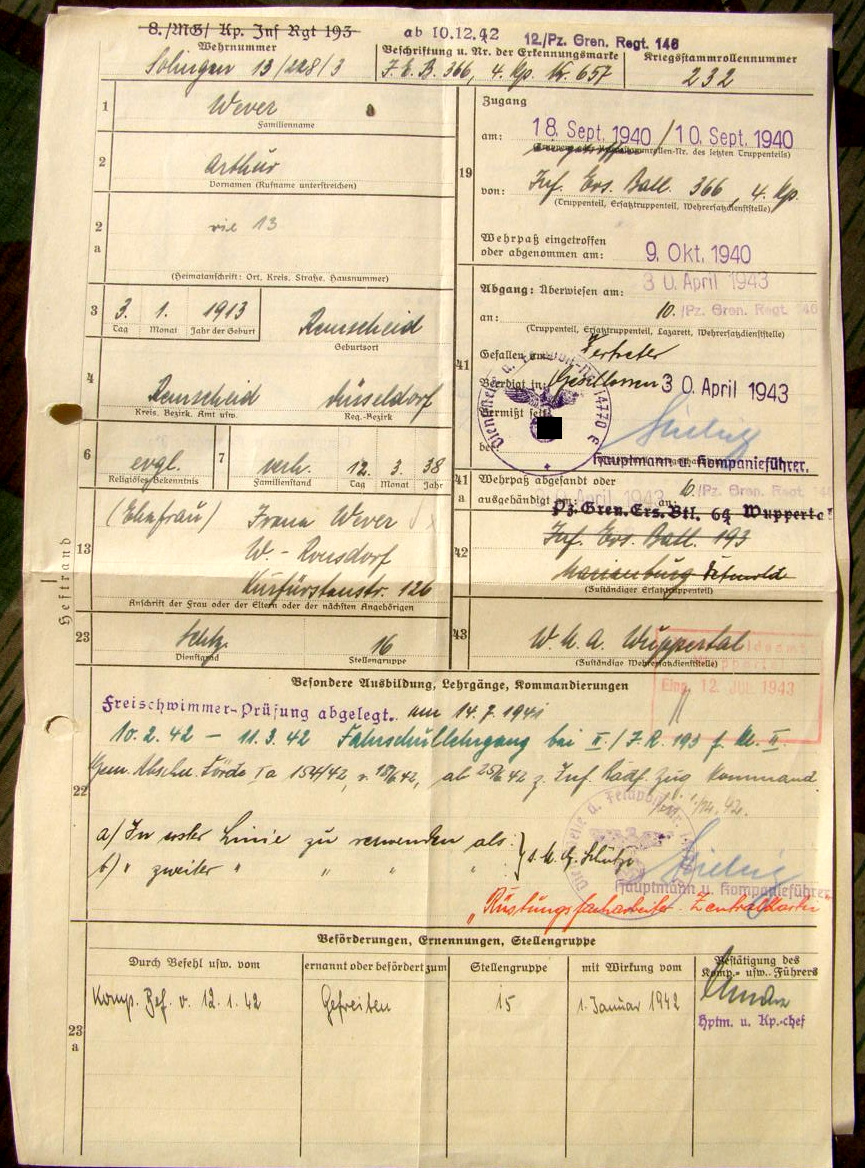 8./MG/ Kp. Inf Rgt 193
ab 10.12.42 12./Pz. Gren. Regt. 146
Wehrnummer
Beschriftung u. Nr. der Erkennungsmarke
Kriegsstammrollennummer
Solingen 13/228/3
J.E.B. 366, 4. Kp. Nr. 657
232
1
Wever
Familienname
2
Arthur
Vornamen (Rufname unterstreichen)
2 a
(Heimatanschrift: Ort, Kreis, Straße, Hausnummer)
3
3. 1. 1913
Tag Monat Jahr der Geburt
Remscheid
Geburtsort
4
Remscheid
Düsseldorf
Kreis, Bezirk, Amt usw.
Reg.-Bezirk
6
evgl.
Religiöses Bekenntnis
7
verh. 12. 3. 38
Familienstand Tag Monat Jahr
13
(Ehefrau)
Wever
W.-Ronsdorf
Kurfürstenstr. 126
Anschrift der Frau oder der Eltern oder der nächsten Angehörigen
23
Schtz.
16
Dienstgrad
Stellengruppe
Heftrand
19
Zugang
am: 18. Sept. 1940 / 10. Sept. 1940
von: Inf. Ers. Batl. 366, 4. Kp.
(Truppenteil, Ersatztruppenteil, Wehrersatzdienststelle)
Wehrpaß eingetroffen
oder abgenommen am:
9. Okt. 1940
30. April 1943
41
Abgang: Überwiesen am:
an: 10./Pz. Gren. Regt. 146
(Truppenteil, Ersatztruppenteil, Lazarett, Wehrersatzdienststelle)
Gefallen am:
Beerdigt in:
Geschlossen 30. April 1943
Vermißt seit
Hauptmann u. Kompanieführer.
41 a
Wehrpaß abgesandt oder
ausgehändigt am: April 1943 an: 6./Pz. Gren. Regt. 146
Pz. Gren. Ers. Btl. 64 Wuppertal
42
Inf. Ers. Batl. 193
Detmold
(Zuständiger Ersatztruppenteil)
43
W. M. A. Wuppertal
(Zuständige Wehrersatzdienststelle)
Eing. 12. JUL 1943
Besondere Ausbildung, Lehrgänge, Kommandierungen
22
Freischwimmer-Prüfung abgelegt. am 14.7.1941
10.2.42 – 11.3.42 Fahrschullehrgang bei II./J.R. 193 f. Kl. II.
154/42, v. 18/6.42, ab 25/6.42 z. Inf. Radf. Zug Kommand.
a) In erster Linie zu verwenden als:
b) " zweiter " " " " "
} s. M. G. Schütze
Hauptmann u. Kompanieführer
"Rüstungsfacharbeiter-Zentralkartei
Beförderungen, Ernennungen, Stellengruppe
Durch Befehl usw. vom
ernannt oder befördert zum
Stellengruppe
mit Wirkung vom
Bestätigung des Komp.- usw. Führers
23 a
Komp. Bef. v. 12.1.42
Gefreiten
15
1. Januar 1942
Hptm. u. Kp.-chef